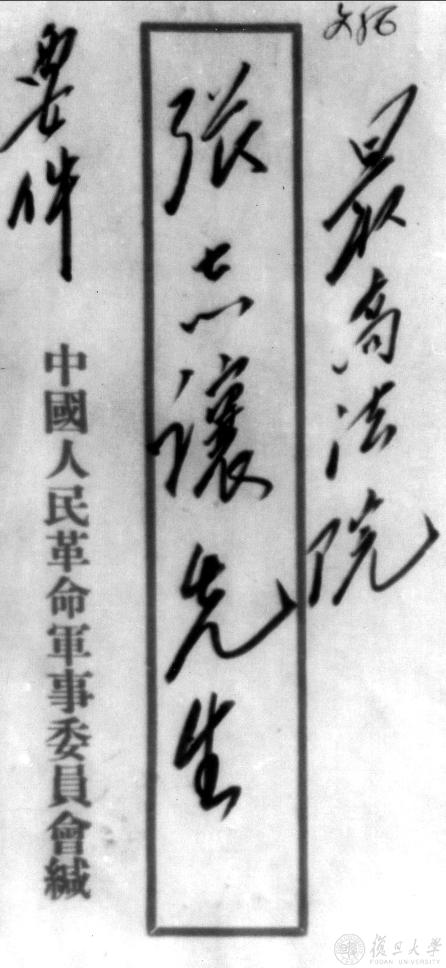 最高法院
張志讓先生
要件
中國人民革命軍事委員會緘
復旦大學
FUDAN UNIVERSITY